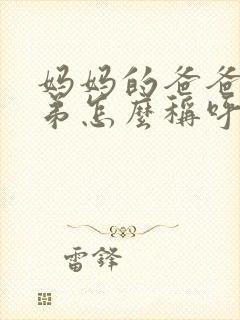 妈妈的爸爸
弟怎麼稱呼
雷锋